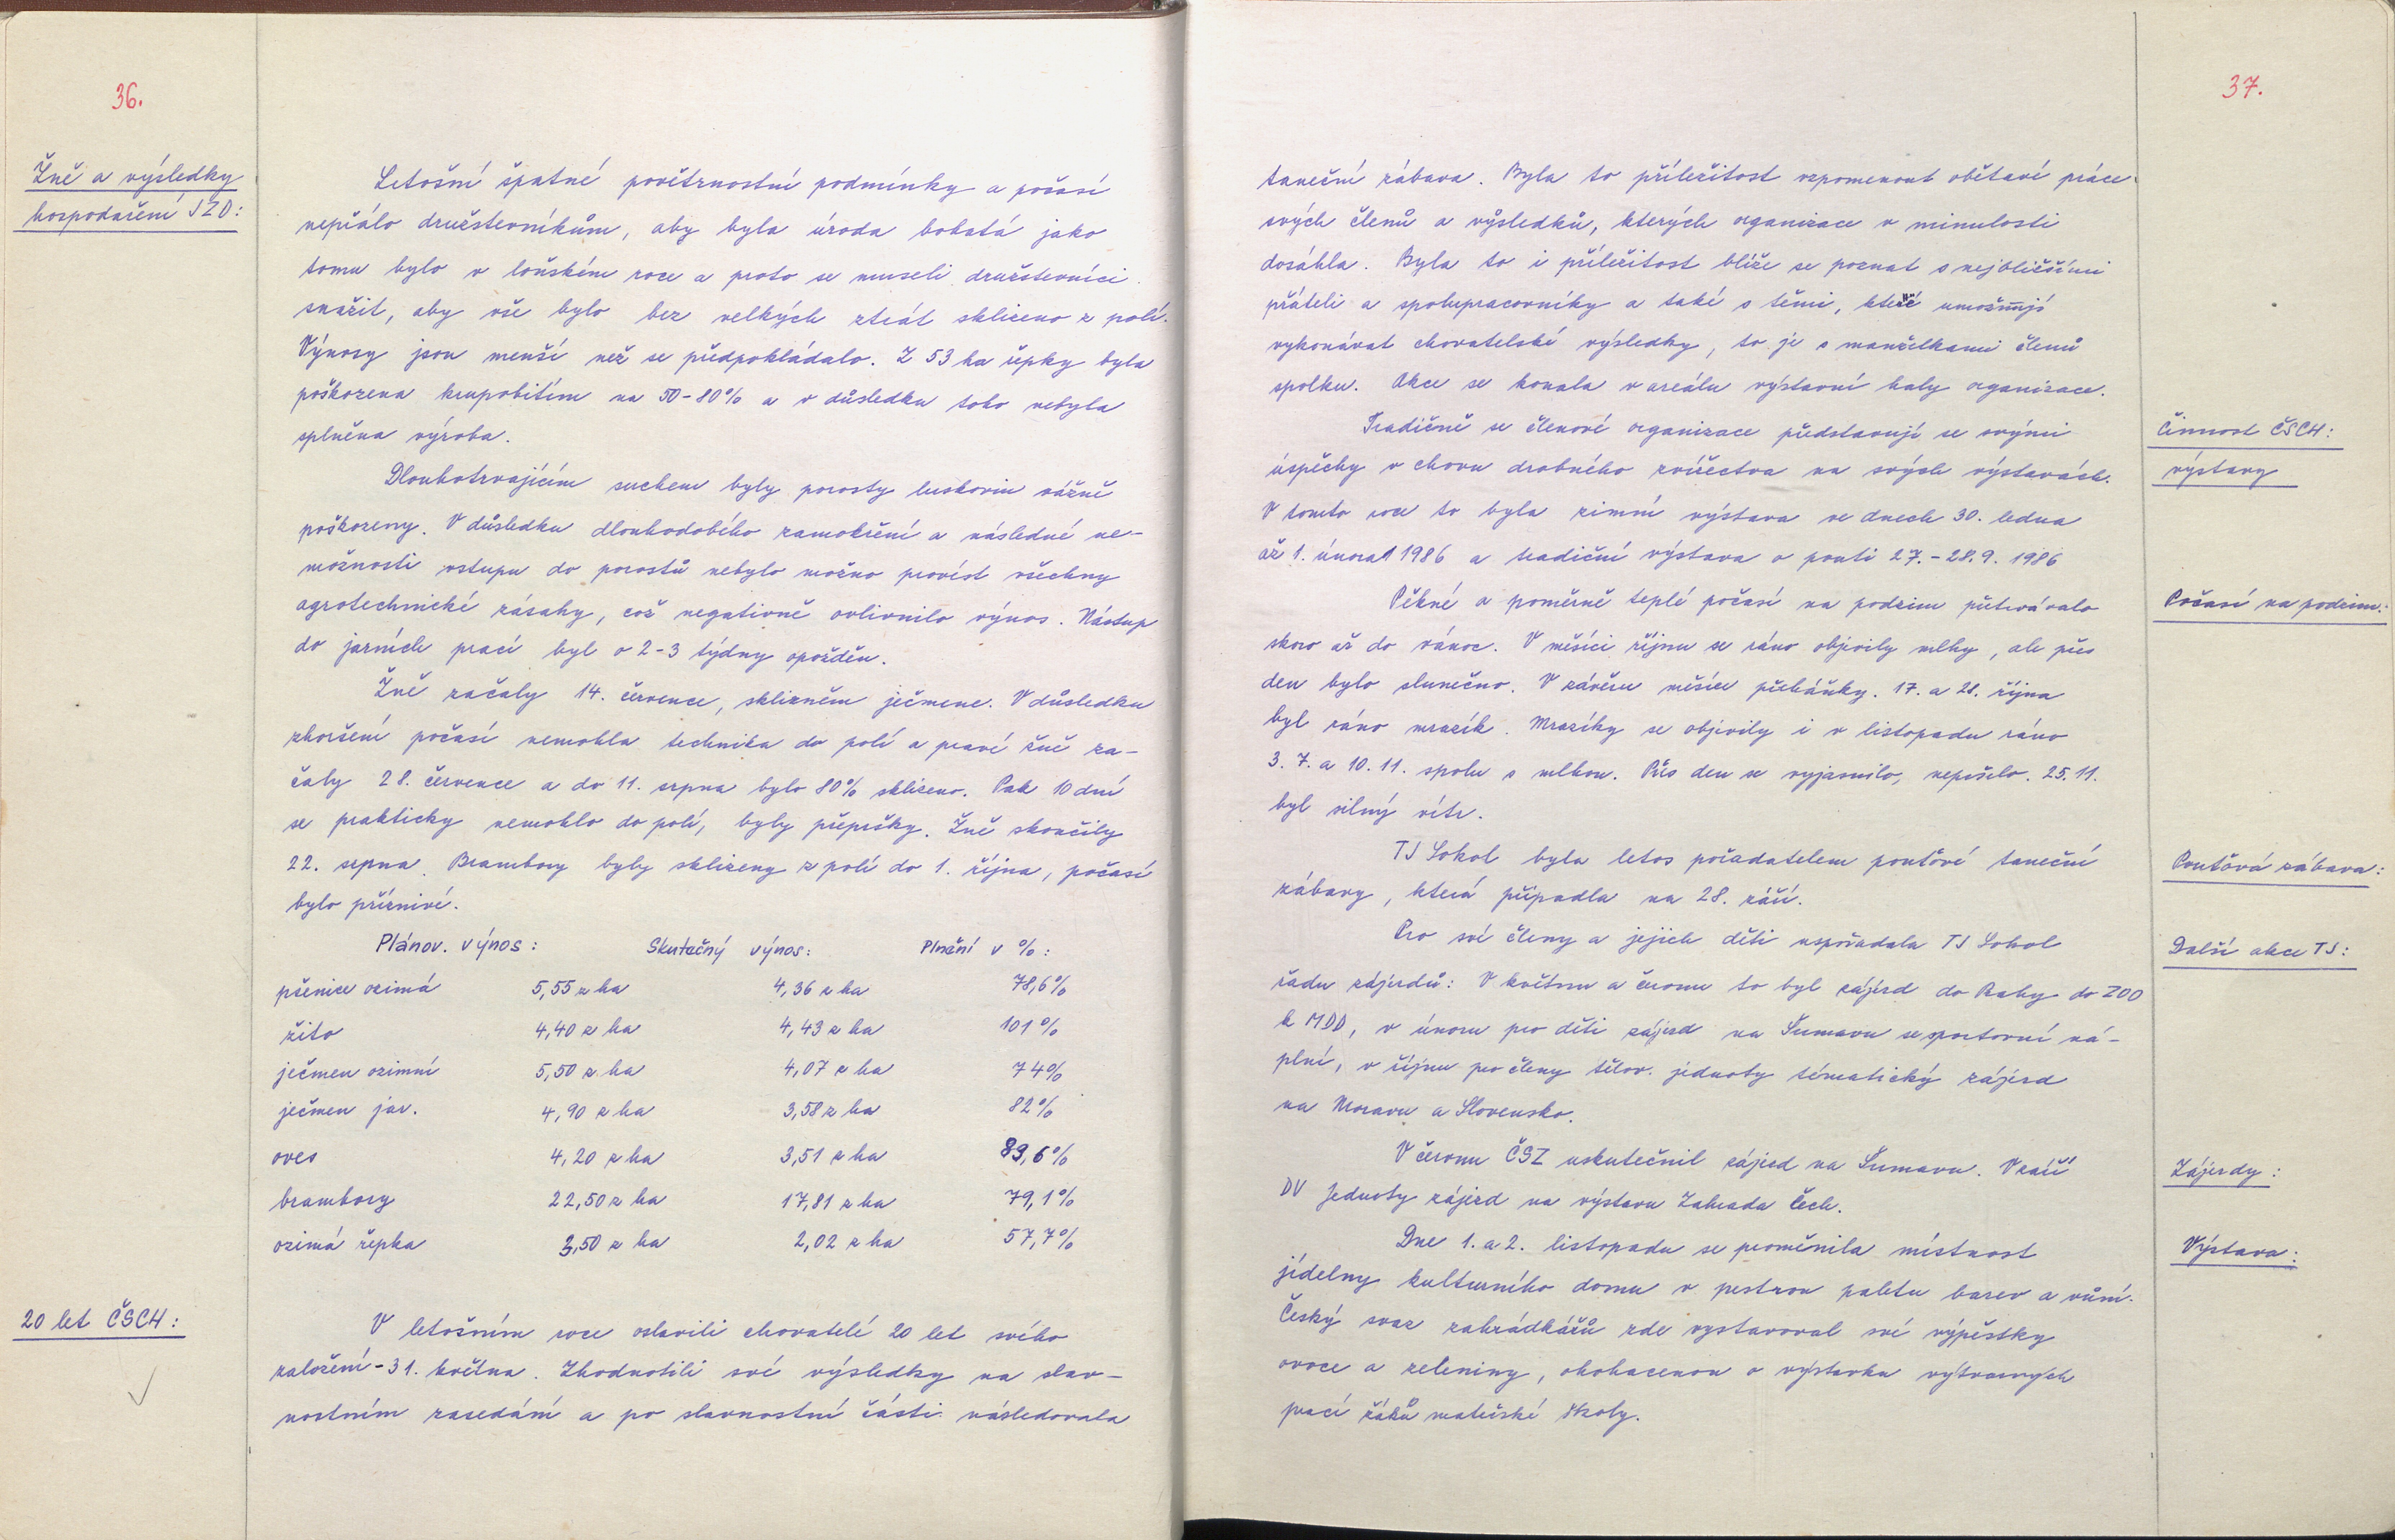 36.
Žně a výsledky
hospodaření JZD:
Letošní špatné povětrnostní podmínky a počasí
nepřálo družstevníkům, aby byla úroda bohatá jako
tomu bylo v loňském roce a proto se museli družstevníci
snažit, aby vše bylo bez velkých ztrát sklizeno z polí.
Výnosy jsou menší než se předpokládalo. Z 53 ha řepky byla
poškozena krupobitím na 50-80% a v důsledku toho nebyla
splněna výroba.
Dlouhotrvajícím suchem byly porosty luskovin vážně
poškozeny. V důsledku dlouhodobého zamokření a následné ne-
možnosti vstupu do porostů nebylo možno provést všechny
agrotechnické zásahy, což negativně ovlivnilo výnos. Nástup
do jarních prací byl o 2-3 týdny opožděn.
Žně začaly 14. července, sklizněm ječmene. V důsledku
zhoršení počasí nemohla technika do polí a pravé žně za-
čaly 28. července a do 11. srpna bylo 80% sklizeno. Pak 10 dní
se prakticky nemohlo do polí, byly přepršky. Žně skončily
22. srpna. Brambory byly sklizeny z polí do 1. října, počasí
bylo příznivé.
Plánov. výnos: Skutečný výnos: Plnění v %:
pšenice ozimá 5,55 z ha 4,36 z ha 78,6%
žito 4,40 z ha 4,43 z ha 101%
ječmen ozimní 5,50 z ha 4,07 z ha 74%
ječmen jar. 4,90 z ha 3,58 z ha 82%
oves 4,20 z ha 3,51 z ha 83,6%
brambory 22,50 z ha 17,81 z ha 79,1%
ozimá řepka 3,50 z ha 2,02 z ha 57,7%
20 let ČSCH:
V letošním roce oslavili chovatelé 20 let svého
založení - 31. května. Zhodnotili své výsledky na slav-
nostním zasedání a po slavnostní části následovala
37.
taneční zábava. Byla to příležitost vzpomenout obětavé práce
svých členů a výsledků, kterých organizace v minulosti
dosáhla. Byla to i příležitost blíže se poznat s nejbližšími
přáteli a spolupracovníky a také s těmi, které umožňují
vykonávat chovatelské výsledky, to je s manželkami členů
spolku. Akce se konala v areálu výstavní haly organizace.
Činnost ČSCH:
výstavy
Tradičně se členové organizace představují se svými
úspěchy v chovu drobného zvířectva na svých výstavách.
V tomto roce to byla zimní výstava ve dnech 30. ledna
až 1. února 1986 a tradiční výstava o pouti 27.-28.9. 1986
Počasí na podzim:
Pěkné a poměrně teplé počasí na podzim přetrvávalo
skoro až do vánoc. V měsíci říjnu se ráno objevily mlhy, ale přes
den bylo slunečno. V závěru měsíce přeháňky. 17. a 28. října
byl ráno mrazík. Mrazíky se objevily i v listopadu ráno
3. 7. a 10. 11. spolu s mlhou. Přes den se vyjasnilo, nepršelo. 25. 11.
byl silný vítr.
Pouťová zábava:
TJ Sokol byla letos pořadatelem pouťové taneční
zábavy, která připadla na 28. září.
Další akce TJ:
Pro své členy a jejich děti uspořádala TJ Sokol
řadu zájezdů: V květnu a červnu to byl zájezd do Prahy do ZOO
k MDD, v únoru pro děti zájezd na Šumavu se sportovní ná-
plní, v říjnu pro členy tělov. jednoty tématický zájezd
na Moravu a Slovensko.
Zájezdy:
V červnu ČSZ uskutečnil zájezd na Šumavu. V září
DV Jednoty zájezd na výstavu Zahrada Čech.
Výstava:
Dne 1. a 2. listopadu se proměnila místnost
jídelny kulturního domu v pestrou paletu barev a vůní.
Český svaz zahrádkářů zde vystavoval své výpěstky
ovoce a zeleniny, obohacenou o výstavku výtvarných
prací žáků mateřské školy.